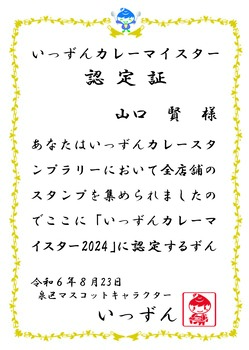 いっずんカレーマイスター
認定証
山口 賢 様
あなたはいっずんカレースタ
ンプラリーにおいて全店舗の
スタンプを集められましたの
でここに「いっずんカレーマ
イスター2024」に認定するずん
令和6年8月23日
泉区マスコットキャラクター
いっずん